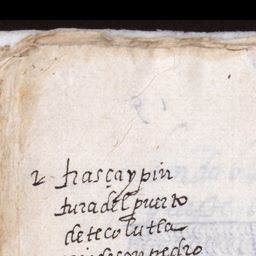 2 trasça y pin
tura del puerto
de tecolutla